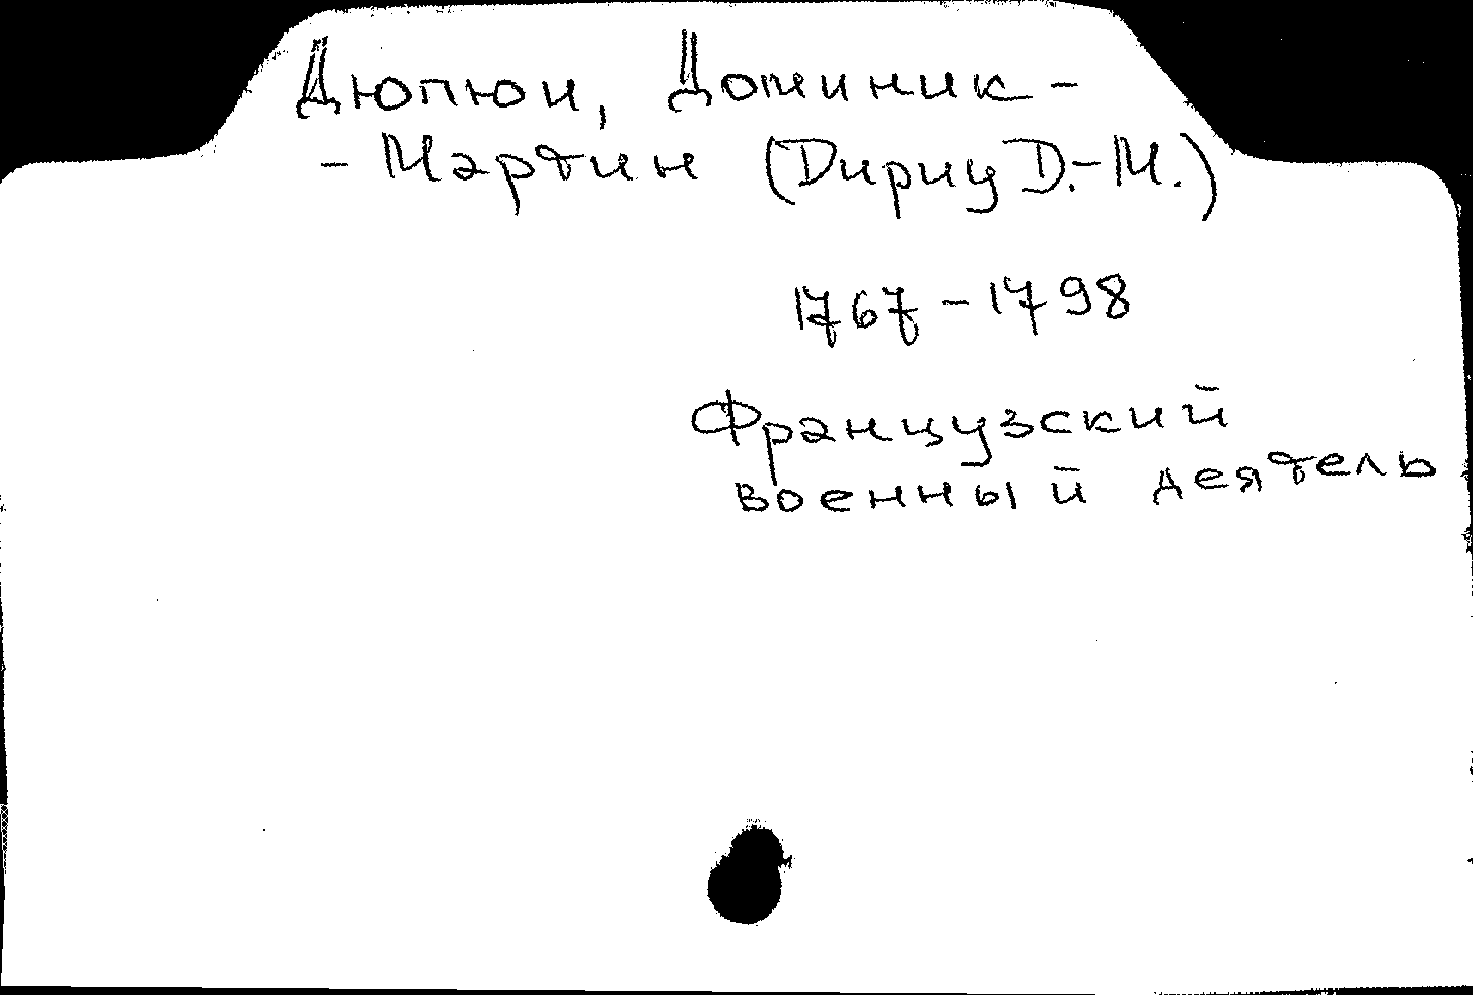 Дюпюи, Доминик-
-Мартин (Dupuy D.-M.)
1767-1798
Французский
военный деятель